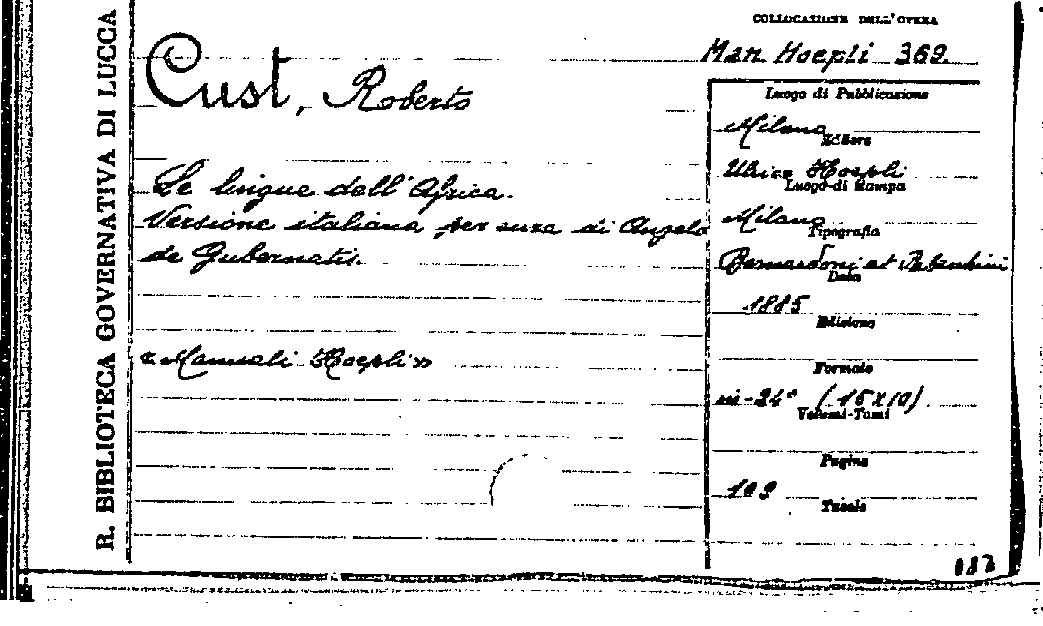 R. BIBLIOTECA GOVERNATIVA DI LUCCA
COLLOCAZIONE DELL'OPERA
Man. Hoepli 369.
Cust, Roberto
Le lingue dell'Africa.
Versione italiana per cura di Angelo
de Gubernatis.
«Manuali Hoepli»
Luogo di Pubblicazione
Milano
Editore
Ulrico Hoepli
Luogo di Stampa
Milano
Tipografia
Bernardoni et
Data
1885
Edizione
Formato
in-24° (15x10)
Volumi-Tomi
Pagine
109
Tavole